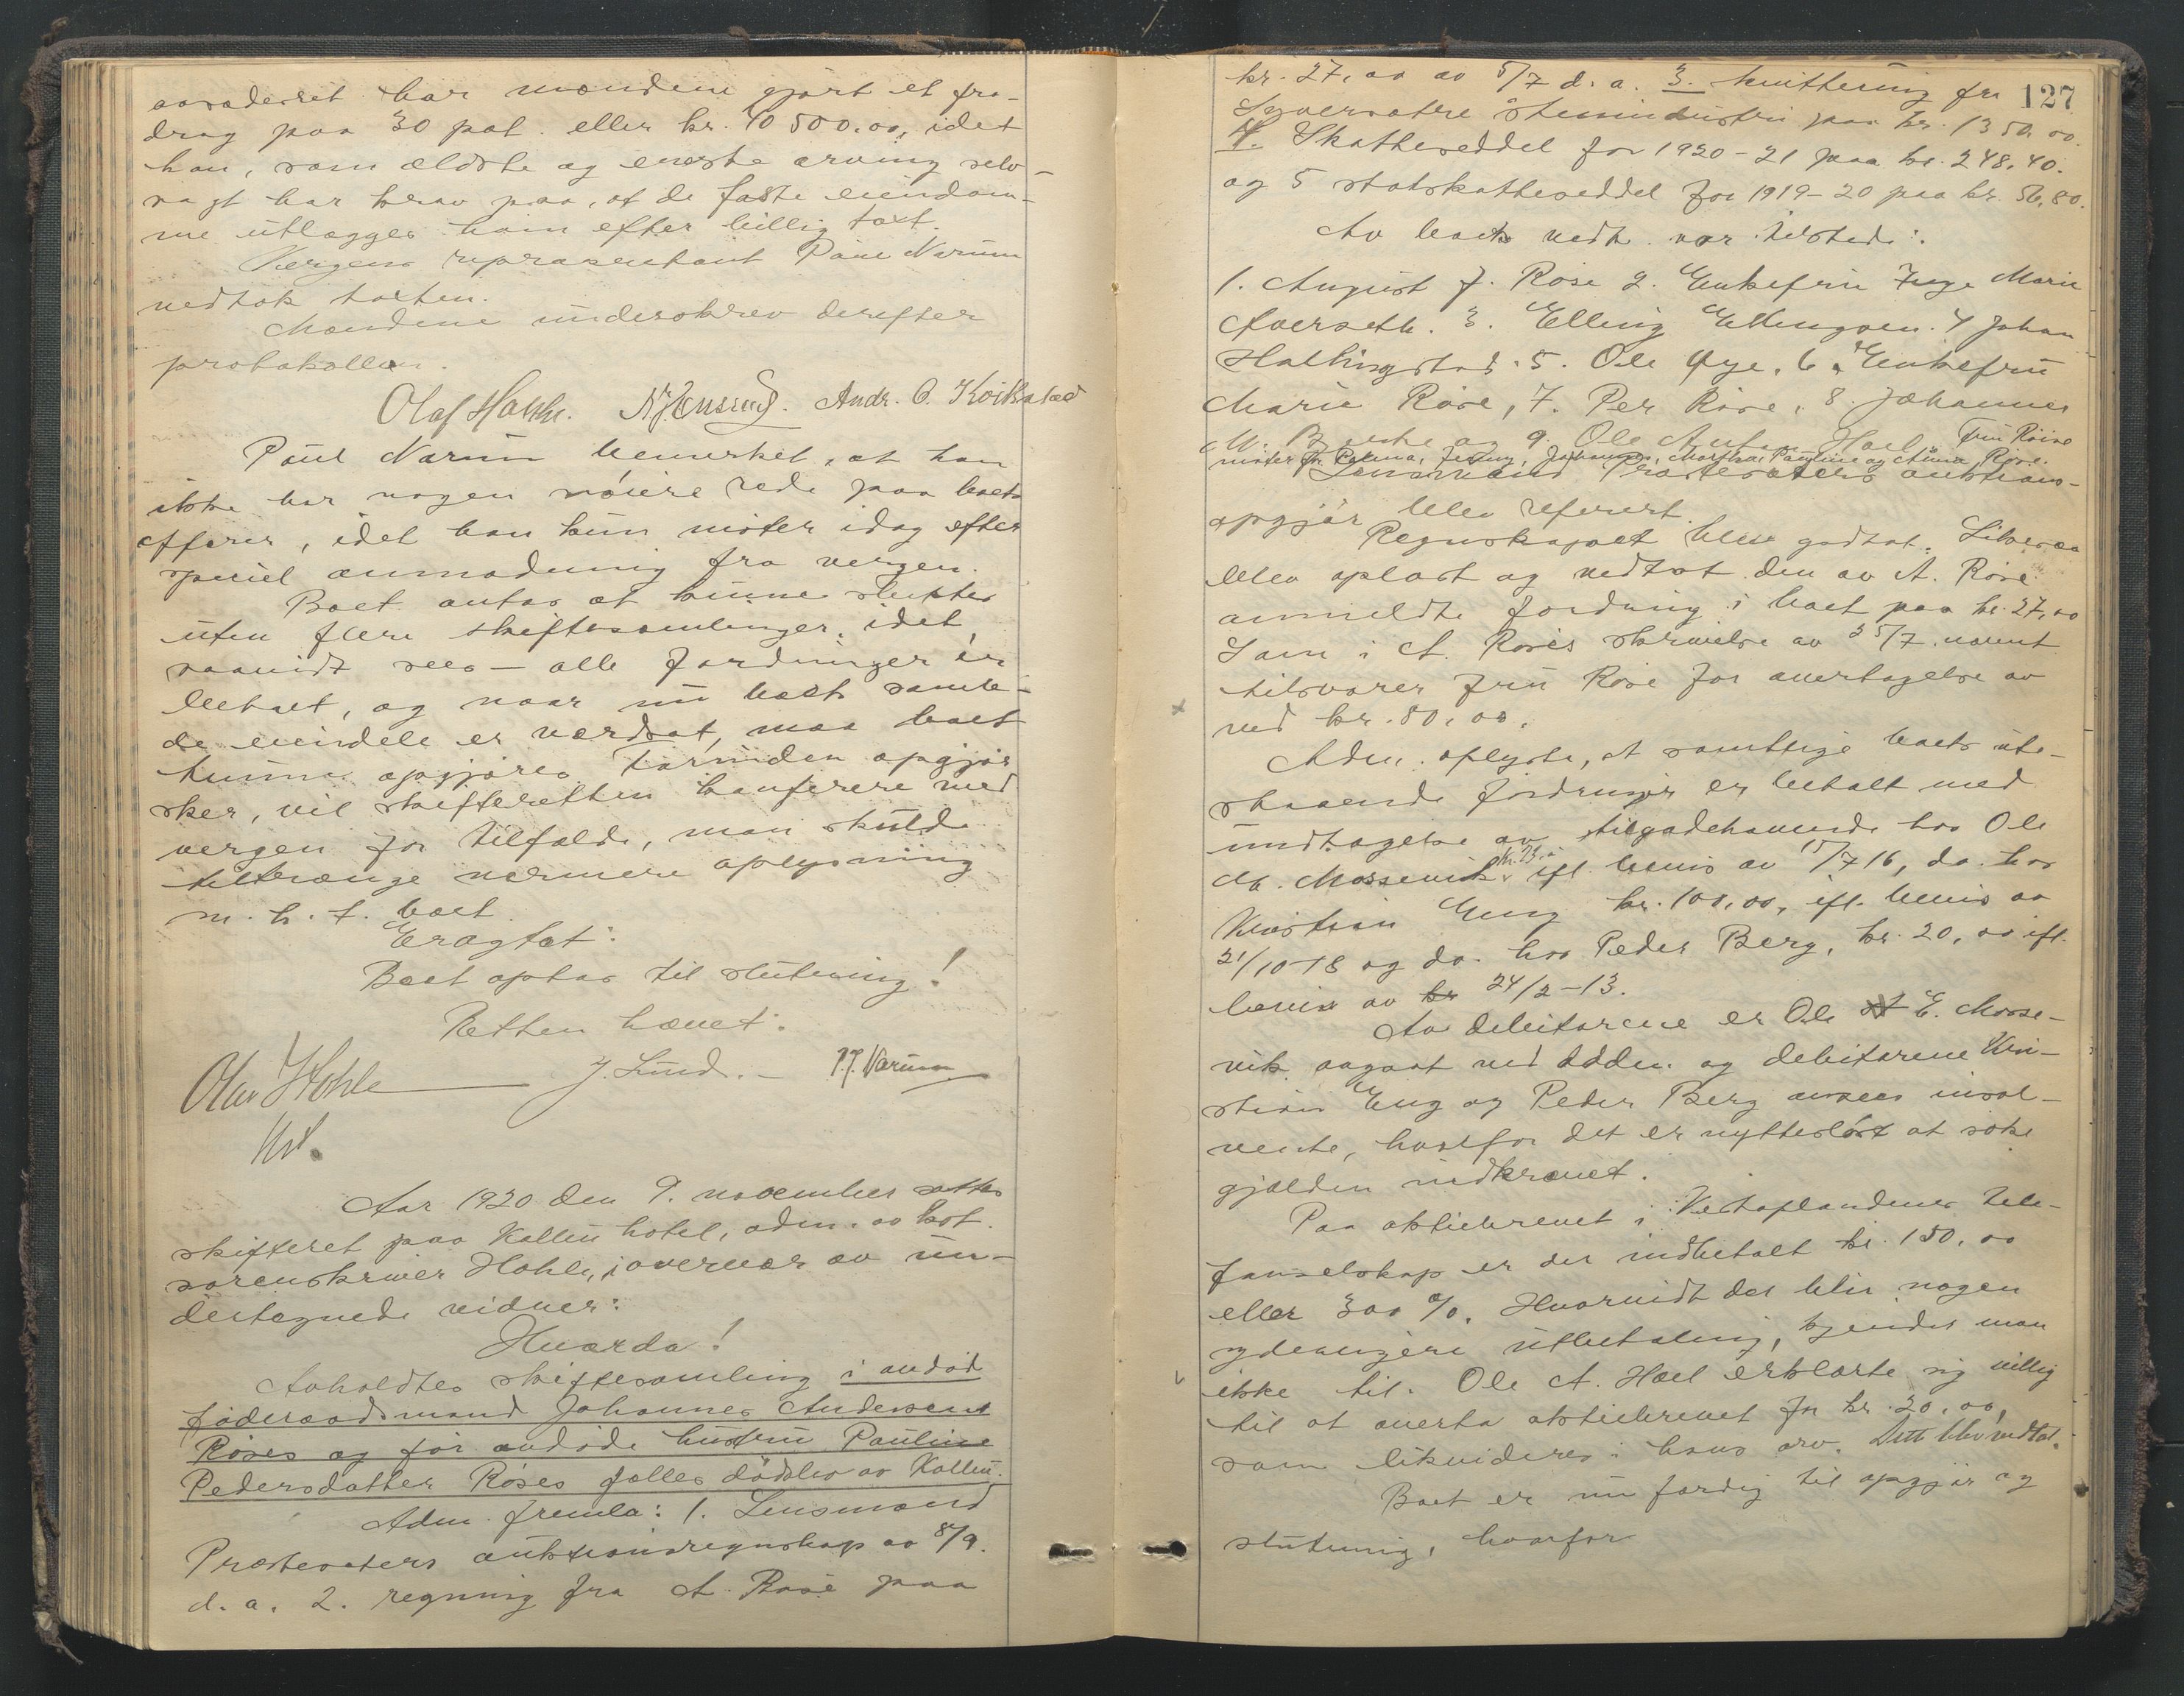 aasædesret har mændene gjort et fra-
drag paa 30 pct. eller kr. 10 500.00, idet
han, som ældste og eneste arving selv-
sagt har krav paa, at de faste eiendom-
me utlægges ham efter billig taxt.
Vergens repræsentant Paul Narum
vedtok taxten.
Mændene underskrev derefter
protokollen.
Olaf Andr. O.
Paul Narum bemerket, at han
ikke har nogen nöiere rede paa boets
affærer, idet han kun möter idag efter
speciel anmodning fra vergen.
Boet antas at kunne sluttes
uten flere skiftesamlinger, idet,
saavidt sees - alle fordringer er
betalt, og naar nu boets samle-
de eiendele er værdsat, maa boet
kunne opgjöres. Forinden opgjör
sker, vil skifteretten konferere med
vergen for tilfælde, man skulde
tiltrænge nærmere oplysning
m. h. t. boet.
Eragtet:
Boet optas til slutning!
Retten hævet.
Olav Hohle J. Lund. - P. J. Narum
Kst.
Aar 1920 den 9. november sattes
skifteret paa Kollin hotel, adm. av kst.
sorenskriver Hohle, i overvær av un-
dertegnede vidner:
Hvorda!
Avholdtes skiftesamling i avdöd
föderaadsmand Johannes Andersen
Röses og för avdöde hustru Pauline
Pedersdatter Röses fælles dödsbo av Kollin.
Adm. fremla: 1. Lensmand
Præstesæters auktionsregnskap av 8/9.
d. a. 2. regning fra A. Röse paa
127
kr. 27,00 av 5/7 d. a. 3. kvittering fra
Syversætre Stenindustri paa kr. 1350.00.
4. Skatteseddel for 1920-21 paa kr. 248.40.
og 5 statskatteseddel for 1919-20 paa kr. 56,80.
Av boets vedk. var tilstede:
1. August J. Röse 2. Enkefru Inge Marie
3. Elling Ellingsen. 4 Johan
Hallingstad. 5. Ole Øye. 6. Enkefru
Marie Röse, 7. Per Röse, 8. Johannes
og 9. Ole Anton Hoel. Fru Röise
möter for Palma, Jenny, Johannes, Martha, Pauline og Anna Röse.
Lensmand Præstesæters auktions-
opgjör blev referert.
Regnskapet blev godtat. Likesaa
blev oplæst og vedtat den av A. Röse
anmeldte fordring i boet paa kr. 27,00
Som i A. Röses skrivelse av 5/7 nævnt
tilsvarer fru Röse for overtagelse av
ved kr. 80,00.
Adm. oplyste, at samtlige boets ute-
staaende fordringer er betalt med
undtagelse av tilgodehavende hos Ole
Mossevik ifl. bevis av 15/7 16, do. hos
Kristian Eng kr. 100,00, ifl. bevis av
21/10-18 og do. hos Peder Berg, kr. 20,00 ifl.
bevis av kr 24/2-13.
Av debitorene er Ole E. Mosse-
vik avgaat ved döden og debitorene Kri-
stian Eng og Peder Berg ansees insol-
vente, hvorfor det er nytteslöst at söke
gjælden indkrævet.
Paa aktiebrevet i Vestoplandenes tele-
fonselskap er der indbetalt kr. 150.00
eller 300 %. Hvorvidt der blir nogen
ydeligere utbetaling, kjender man
ikke til. Ole A. Hoel erklærte sig villig
til at overta aktiebrevet for kr. 20,00,
som likvideres i hans arv. Dette blev vedtat.
Boet er nu færdig til opgjör og
slutning, hvorfor